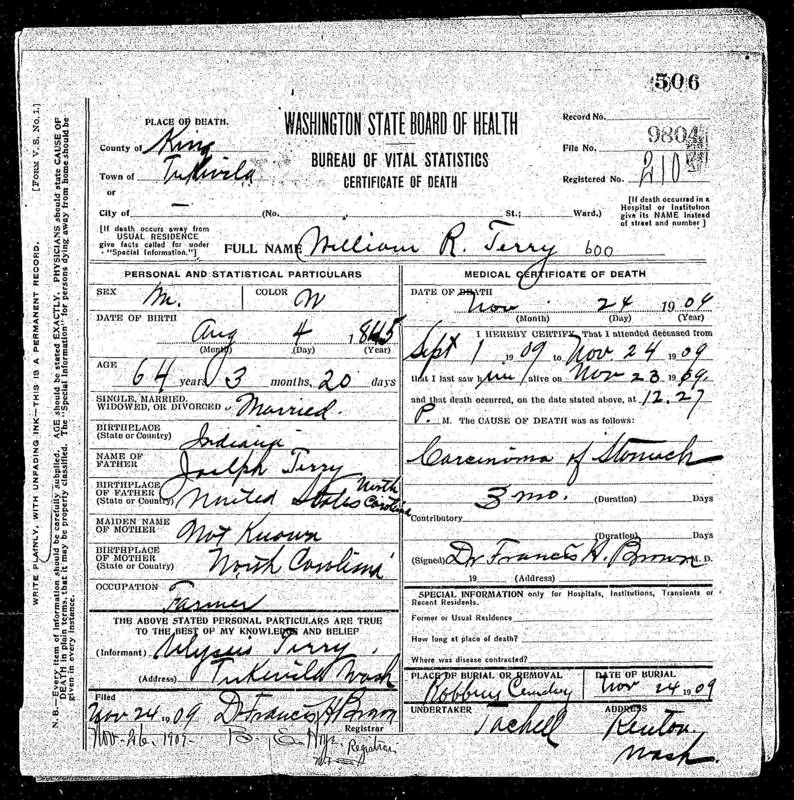 506
[FORM V. S. No. 1.]
WRITE PLAINLY, WITH UNFADING INK—THIS IS A PERMANENT RECORD.
N. B.—Every item of information should be carefully supplied. AGE should be stated EXACTLY. PHYSICIANS should state CAUSE OF
DEATH in plain terms, that it may be properly classified. The "Special Information" for persons dying away from home should be
given in every instance.
PLACE OF DEATH.
County of King
Town of Tukwila
or
City of —
(No. St.; Ward.)
WASHINGTON STATE BOARD OF HEALTH
BUREAU OF VITAL STATISTICS
CERTIFICATE OF DEATH
Record No.
File No. 9804
Registered No. 210
[If death occurred in a
Hospital or Institution
give its NAME instead
of street and number]
[If death occurs away from
USUAL RESIDENCE
give facts called for under
"Special Information."]
FULL NAME William R. Terry 600
PERSONAL AND STATISTICAL PARTICULARS
SEX M. COLOR W
DATE OF BIRTH
Aug 4 1845
(Month) (Day) (Year)
AGE
64 years 3 months, 20 days
SINGLE, MARRIED,
WIDOWED, OR DIVORCED Married.
BIRTHPLACE
(State or Country) Indiana
NAME OF
FATHER Joseph Terry
BIRTHPLACE
OF FATHER
(State or Country) United States North Carolina
MAIDEN NAME
OF MOTHER Not Known
BIRTHPLACE
OF MOTHER
(State or Country) North Carolina
OCCUPATION
Farmer
THE ABOVE STATED PERSONAL PARTICULARS ARE TRUE
TO THE BEST OF MY KNOWLEDGE AND BELIEF
(Informant) Ulyssis Terry
(Address) Tukwila Wash
Filed
Nov 24 1909 Dr Francis H Brown
Registrar
Nov-26-1909- Registrar
MEDICAL CERTIFICATE OF DEATH
DATE OF DEATH
Nov 24 1909
(Month) (Day) (Year)
I HEREBY CERTIFY, That I attended deceased from
Sept 1 1909 to Nov 24 1909
that I last saw him alive on Nov 23 1909,
and that death occurred, on the date stated above, at 12.27
P. M. The CAUSE OF DEATH was as follows:
Carcinoma of Stomach
3 mo. (Duration) Days
Contributory
(Duration) Days
(Signed) Dr Francis H. Brown M. D.
19 (Address)
SPECIAL INFORMATION only for Hospitals, Institutions, Transients or
Recent Residents.
Former or Usual Residence
How long at place of death?
Where was disease contracted?
PLACE OF BURIAL OR REMOVAL DATE OF BURIAL
Robbins Cemetery Nov 24 1909
UNDERTAKER ADDRESS
Tachell Renton,
Wash.